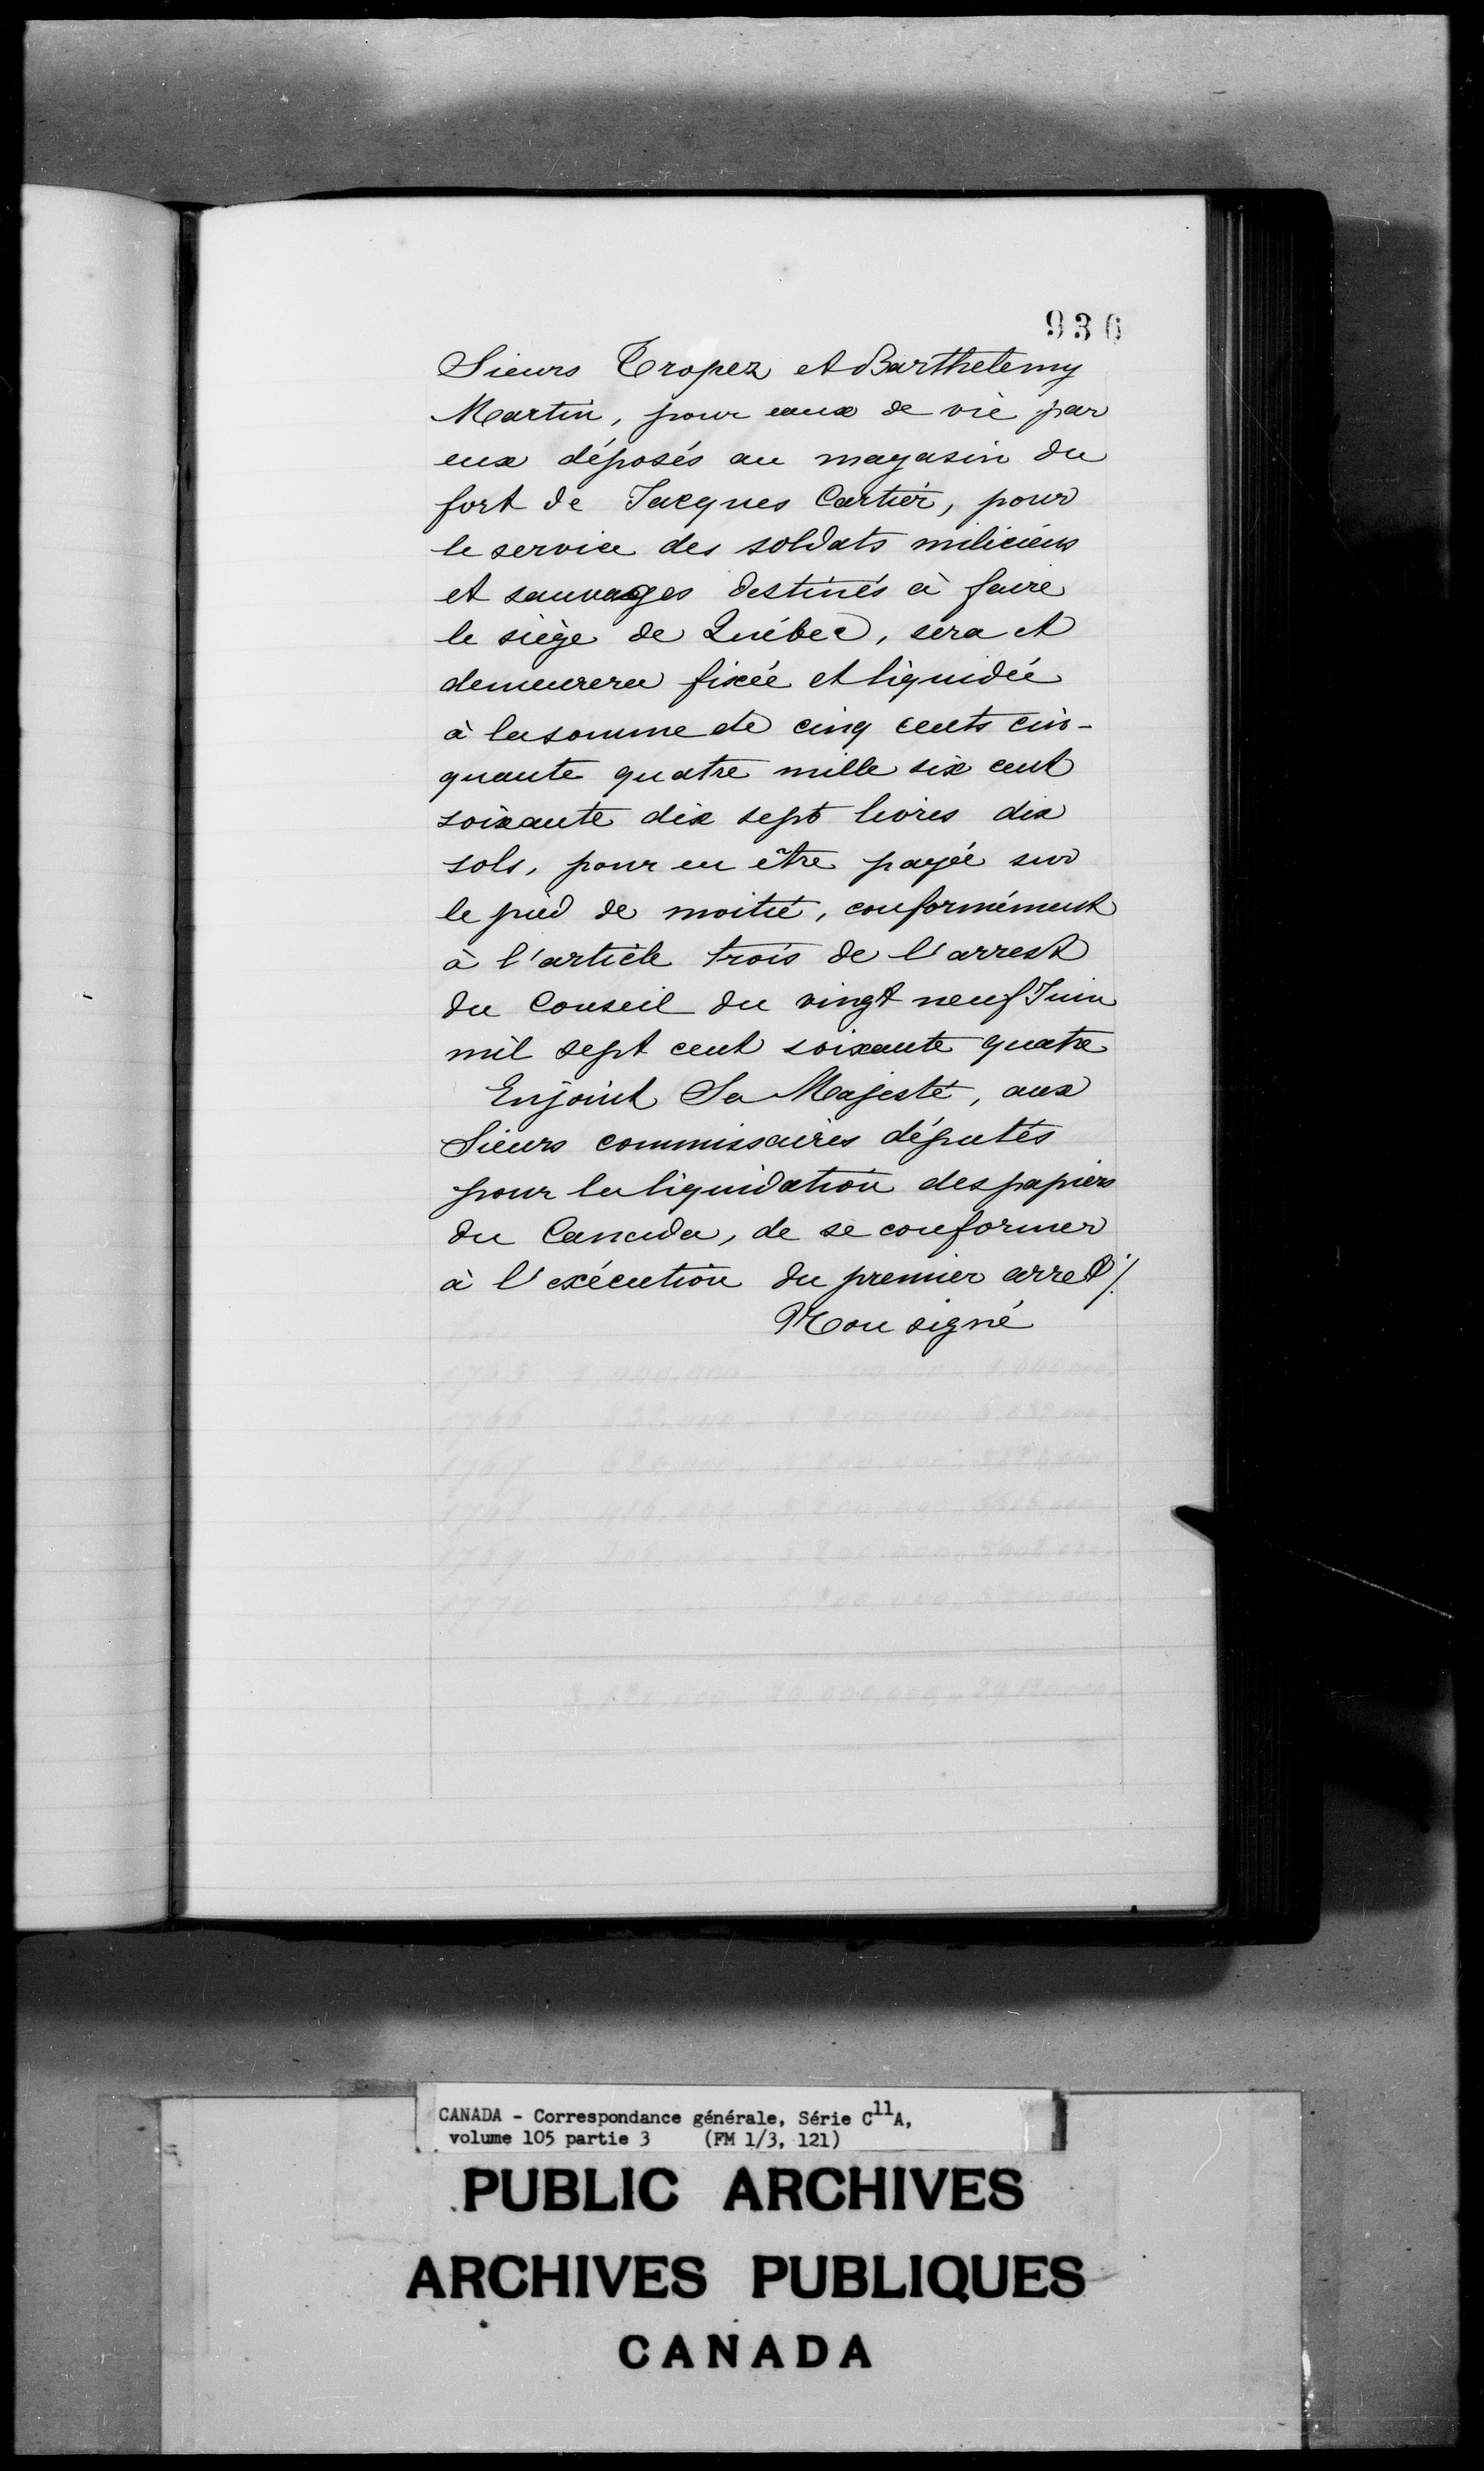 936
Sieurs Tropez et Barthelemy
Martin, pour eaux de vie par
eux déposés au magasin du
fort de Jacques Cartier, pour
le service des soldats miliciens
et sauvages destinés à faire
le siège de Québec, sera et
demeurera fixée et liquidée
à la somme de cinq cents cin-
quante quatre mille six cent
soixante dix sept livres dix
sols, pour en être payée sur
le pied de moitié, conformément
à l'article trois de l'arrest
du Conseil du vingt neuf Juin
mil sept cent soixante quatre
Enjoint Sa Majesté, aux
Sieurs commissaires députés
pour la liquidation des papiers
du Canada, de se conformer
à l'exécution du premier arret ./.
Non signé
CANADA - Correspondance générale, Série C11A,
volume 105 partie 3 (FM 1/3, 121)
PUBLIC ARCHIVES
ARCHIVES PUBLIQUES
CANADA